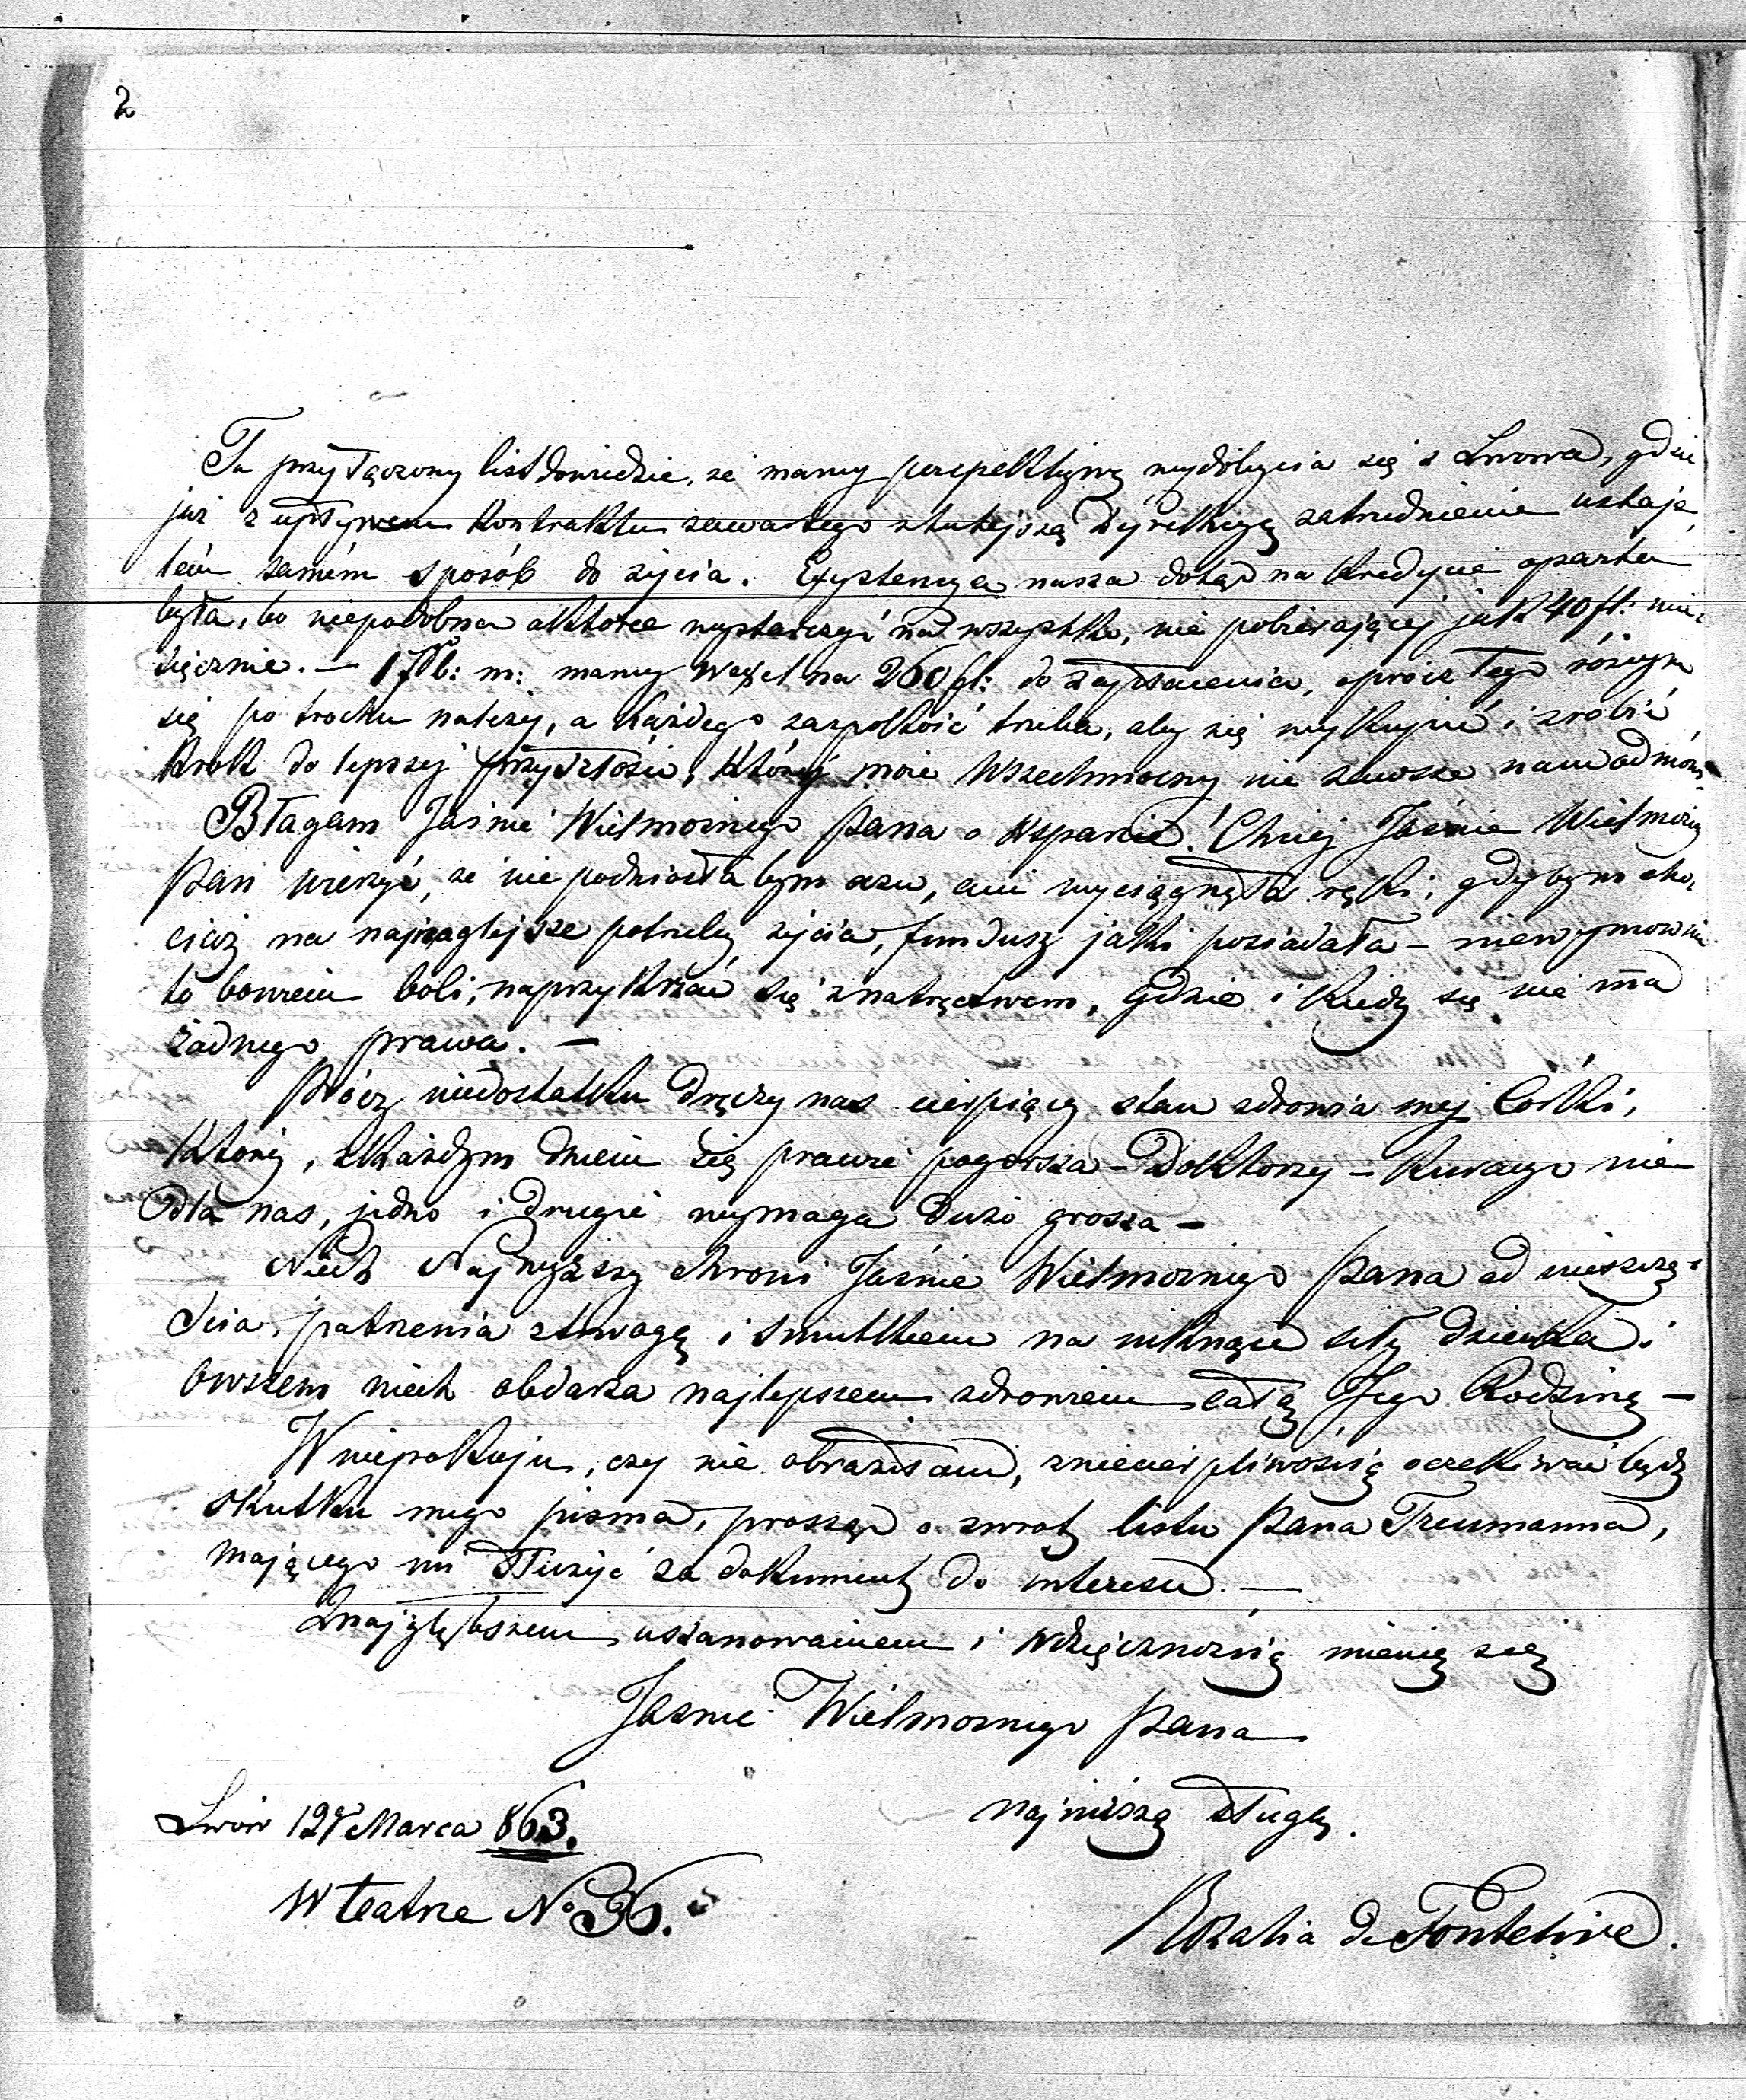 2
Tu przyłączony list dowiedzie, że mamy perspektywę wydobycia się z Lwowa, gdzie
już z upływem kontraktu zawartego z tutejszą Dyrekcyą zatrudnienie ustaje,
tém samém sposób do życia. Exystencya nasza dotąd na kredycie oparta
była, bo niepodobna aktorce wystarczyć na wszystko, nie pobierającej jak 40 fl: mie-
sięcznie. — 17 b: m: mamy wexel na 260 fl: do zapłacenia, oprócz tego różnym
się po trochu należy, a każdego zaspokoić trzeba, aby się wykupić i zrobić
krok do lepszej przyszłości, któréj może Wszechmocny nie zawsze nam odmówi.
Błagam Jaśnie Wielmożnego Pana o wsparcie! Chciej Jaśnie Wielmożny
Pan wierzyć, że nie podniosłabym oczu, ani wyciągnęła ręki, gdybym cho-
ciaż na najnaglejsze potrzeby życia, fundusz jaki posiadała — niewymownie
to bowiem boli, naprzykrzać się z natręctwem, gdzie i kiedy się nie ma
żadnego prawa. —
Prócz niedostatku dręczy nas cierpiący stan zdrowia mej Córki,
któréj, z każdym dniem się prawie pogorsza — Doktorzy — Kuracye nie
dla nas, jedno i drugie wymaga dużo grosza —
Niech Najwyższy chroni Jaśnie Wielmożnego Pana od nieszczę-
ścia, patrzenia z trwogą i smutkiem na niknące siły dziecka i
owszem niech obdarza najlepszem zdrowiem całą Jego Rodzinę —
W niepokoju, czy nie obraziłam, z niecierpliwością oczekiwać będę
skutku mego pisma, prosząc o zwrot listu Pana Treumanna,
mającego mi służyć za dokument do interesu. —
Z najgłębszem uszanowaniem i wdzięcznością mienię się
Jaśnie Wielmożnego Pana
najniższą sługą.
Lwów 12 Marca 863.
W teatrze No 36.
Rozalia de Fontelive.